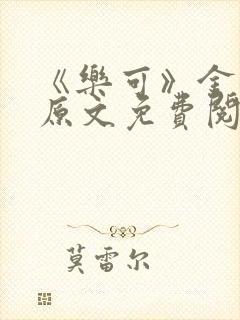 《樂可》全
原文免費閱
莫雷尔